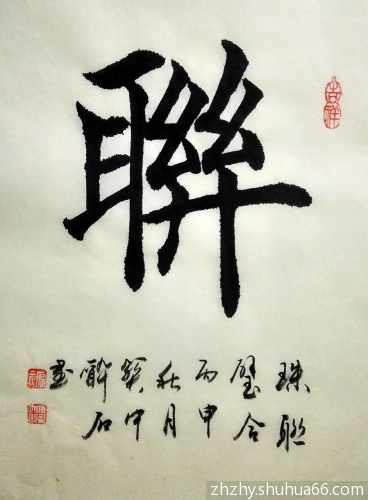 聯
吉祥
珠聯
璧合
丙申
秋月
中
醉石
書
zhzhy.shuhua66.com